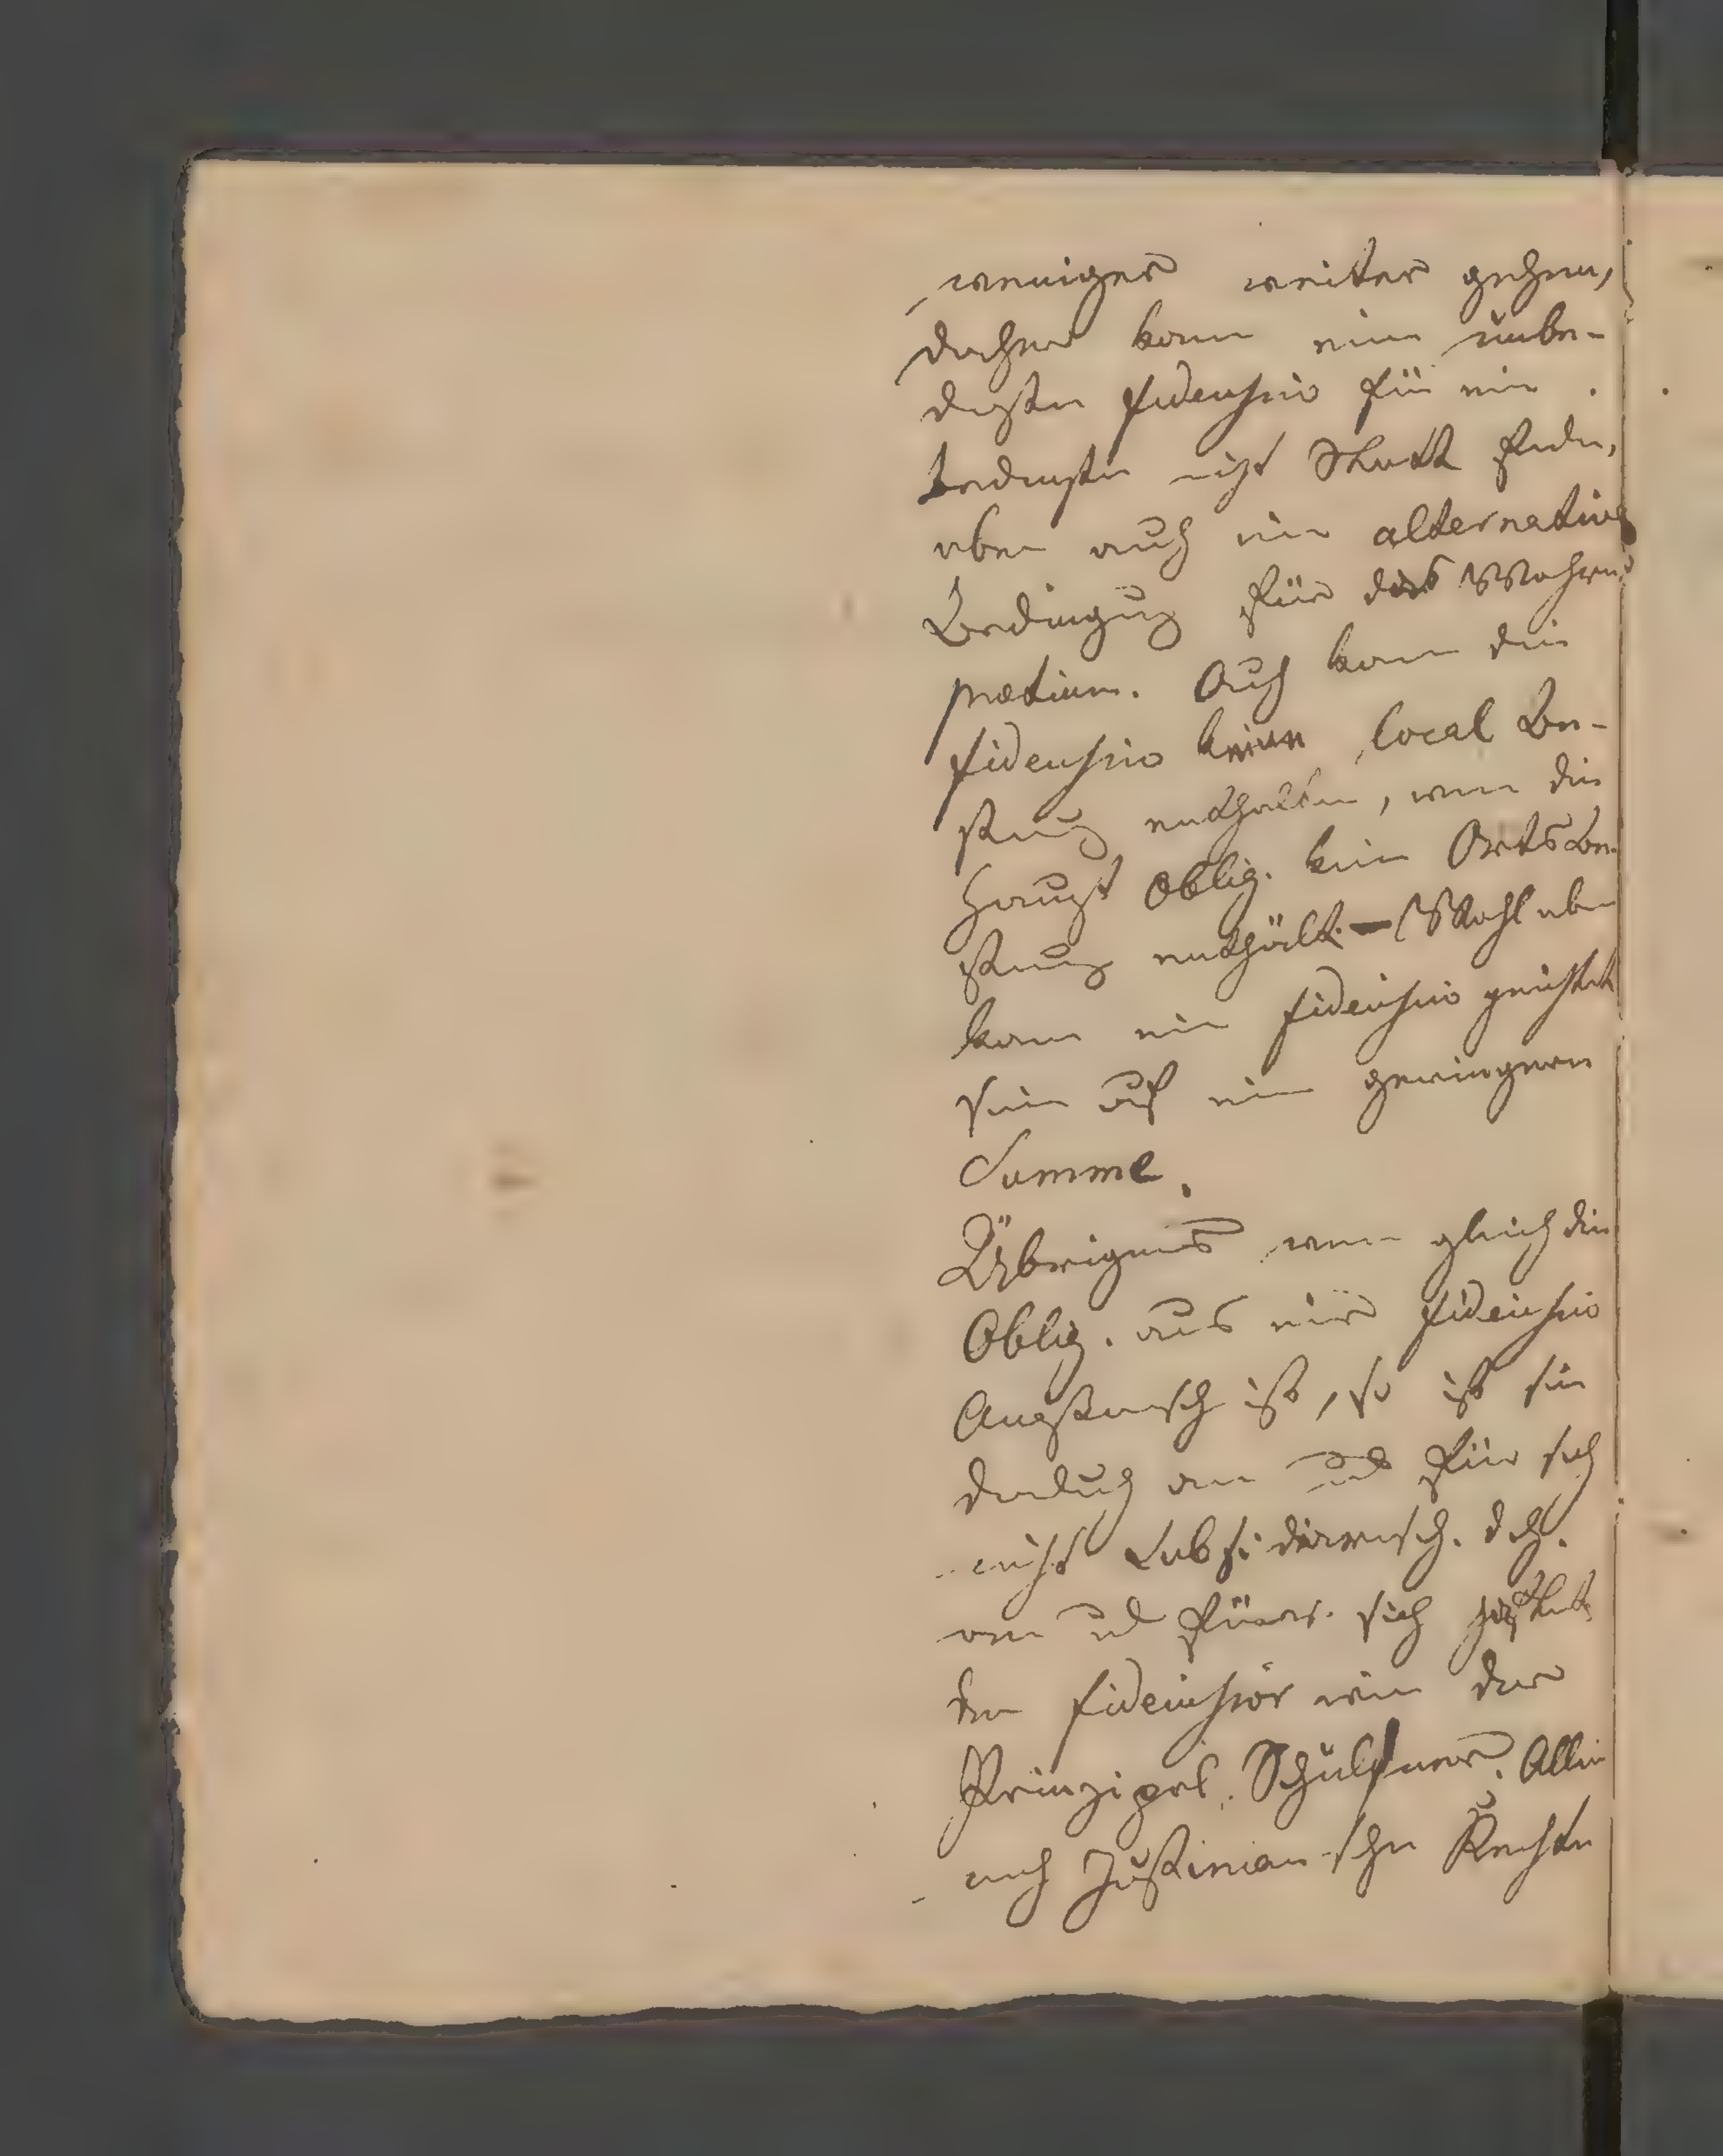 weniger weiter gehen,
daher kann eine unbe-
dingte fidejussio für eine
bedingte nicht Statt finden,
eben auch eine alternative
Bedingung für das Wahre
pretium. Auch kann die
fidejussio keine local Be-
stimmung enthalten, wenn die
Haupt Oblig. keine Orts Be-
stimmung enthält – Wohl aber
kann eine fidejussio gerichtet
sein auf eine geringere
Summe.
Übrigens wenn gleich die
Oblig. aus einer fidejussio
ist, so ist sie
dadurch an und für sich
nicht Subsidiarisch. d. h.
an und für sich haftet
der fidejussor wie der
Prinzipal Schuldner. Allein
nach Justinianischen Rechte